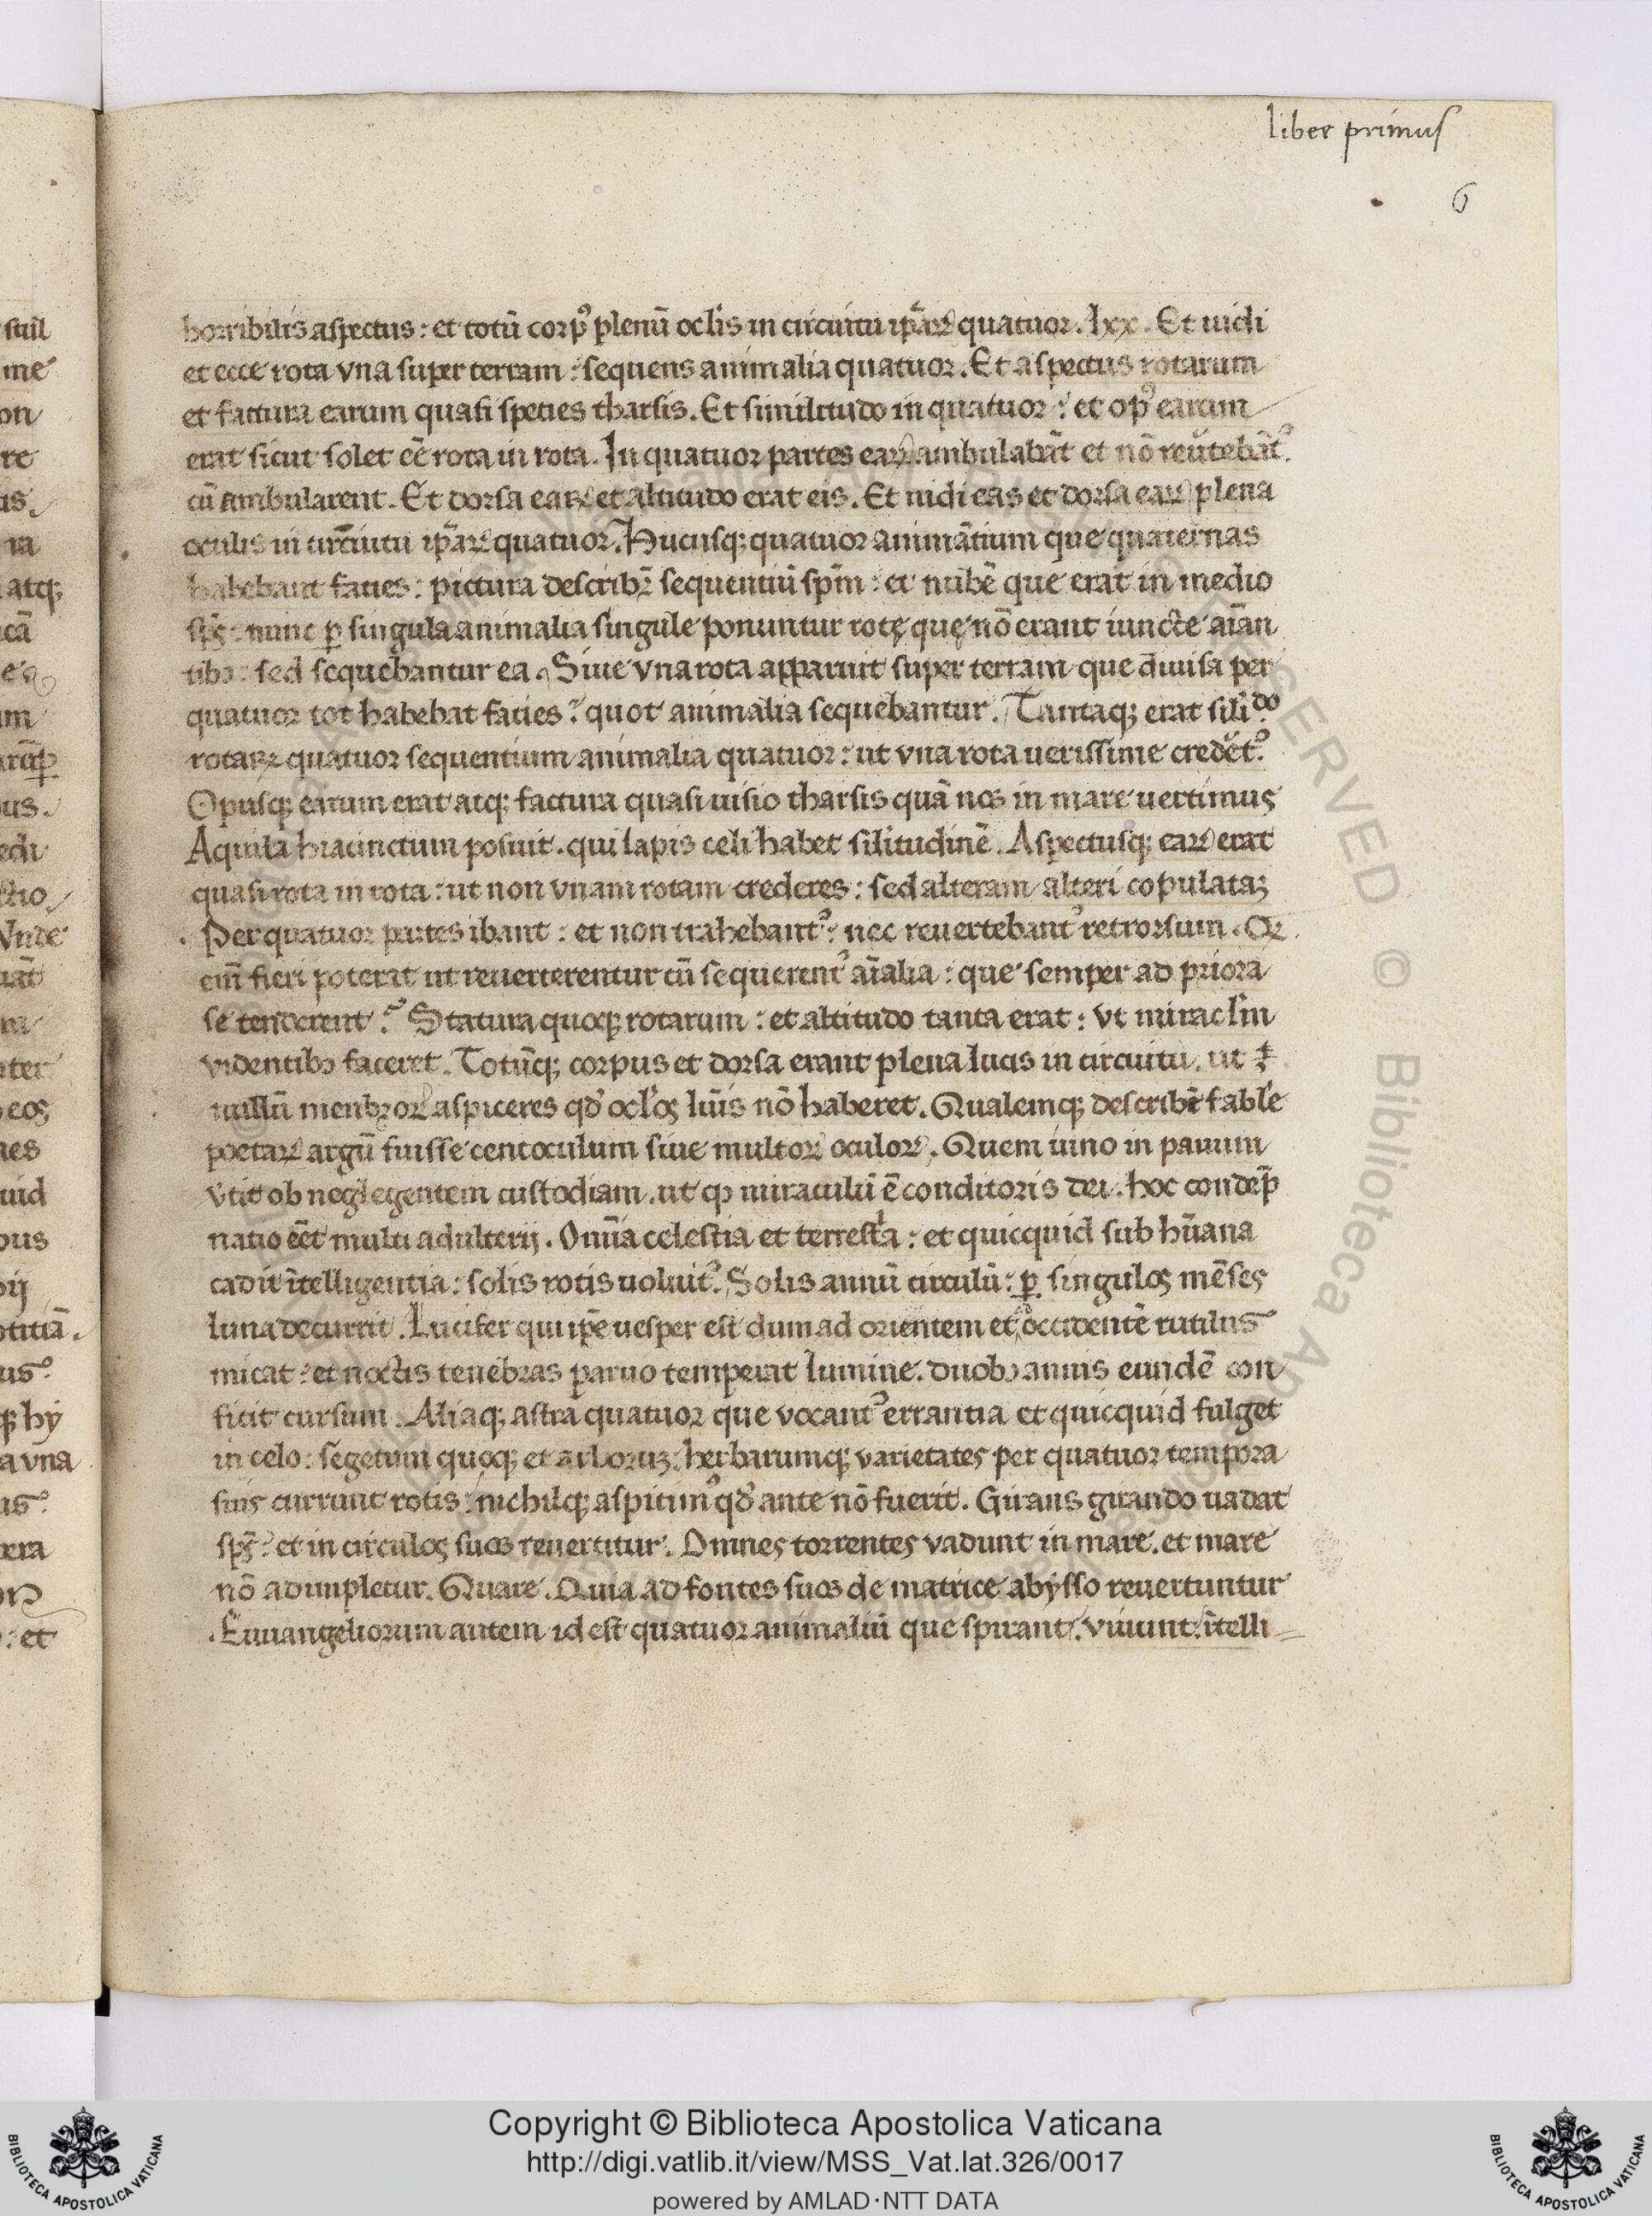 liber primus
6
horribilis aspectus : et totũ corpꝰ plenũ ocl'is in circuitu ip̃aꝝ quatuor . lxx . Et uidi
et ecce rota vna super terram : sequens animalia quatuor . Et aspectus rotarum
et factura earum quasi species tharsis . Et similitudo in quatuor : et opꝰ earum
erat sicut solet eẽ rota in rota . In quatuor partes eaꝝ ambulabãt et nõ reũtebãtꝰ
cũ ambularent . Et dorsa eaꝝ et altitudo erat eis . Et uidi eas et dorsa eaꝝ plena
oculis in circuitu ip̃aꝝ quatuor . Hucusqꝫ quatuor animãtium que quaternas
habebant facies : pictura describr̃ sequentiũ sp̃m : et nubẽ que erat in medio
sp̃s : nunc ꝑ singula animalia singule ponuntur rotę quę nõ erant iuncte aĩan
tibꝫ : sed sequebantur ea . Siue vna rota apparuit super terram que diuisa per
quatuor tot habebat facies : quot animalia sequebantur . Tantaqꝫ erat sil'ido
rotaꝝ quatuor sequentium animalia quatuor : ut vna rota uerissime credet̃ꝰ
Opusqꝫ earum erat atqꝫ factura quasi uisio tharsis quã nos in mare uertimus
Aquila hiacinctum posuit . qui lapis celi habet silitudinẽ . Aspectusqꝫ eaꝝ erat
quasi rota in rota : ut non vnam rotam crederes : sed alteram alteri copulataꝫ
Per quatuor partes ibant : et non trahebantꝰ : nec reuertebantꝰ retrorsum . Qꝛ
em̃ fieri poterat ut reuerterentur cũ sequerentꝰ aĩalia : que semper ad priora
se tenderent . Statura quoqꝫ rotarum : et altitudo tanta erat : vt miracl'm
videntibꝫ faceret . Totũqꝫ corpus et dorsa erant plena lucis in circuitu . ut
nullũ menbꝛoꝝ aspiceres qđ ocl'os lũis nõ haberet . Qualemqꝫ describr̃t fabl'e
poetaꝝ argũ fuisse centoculum siue multoꝝ oculoꝝ . Quem iuno in pauum
vtit ob neglegentem custodiam . ut qꝫ miraculũ ẽ conditoris dei . hoc condẽp
natio eẽt multi adulterij . Omnia celestia et terrestia : et quicquid sub hũana
cadit ĩtelligentia : solis rotis uoluitꝰ . Solis annũ circulũ : ꝑ singulos mẽses
luna decurrit . Lucifer qui ip̃e uesper est dum ad orientem et occidentẽ rutilus
micat : et noctis tenebras paruo temperat lumine . duobꝫ annis eundẽ con
ficit cursum . Aliaqꝫ astra quatuor que vocantꝰ errantia et quicquid fulget
in celo : segetum quoqꝫ et arboruꝫ : herbarumqꝫ varietates per quatuor tempora
suis currunt rotis : nichilqꝫ aspicimꝰ qđ ante nõ fuerit . Girans girando uadat
sp̃s : et in circulos suos reuertitur . Omnes torrentes vadunt in mare . et mare
nõ adimpletur . Quare . Quia ad fontes suos de matrice abysso reuertuntur
Euuangeliorum autem id est quatuor animaliũ que spirant . viuunt . ĩtelli
Copyright © Biblioteca Apostolica Vaticana
http://digi.vatlib.it/view/MSS_Vat.lat.326/0017
powered by AMLAD·NTT DATA
BIBLIOTECA APOSTOLICA VATICANA
BIBLIOTECA APOSTOLICA VATICANA